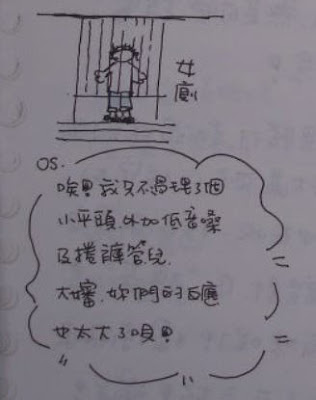 女廁
OS.
唉!我只不過理了個
小平頭.外加低音嗓
及捲褲管兒.
大嬸.妳們的反應
也太大了唄!